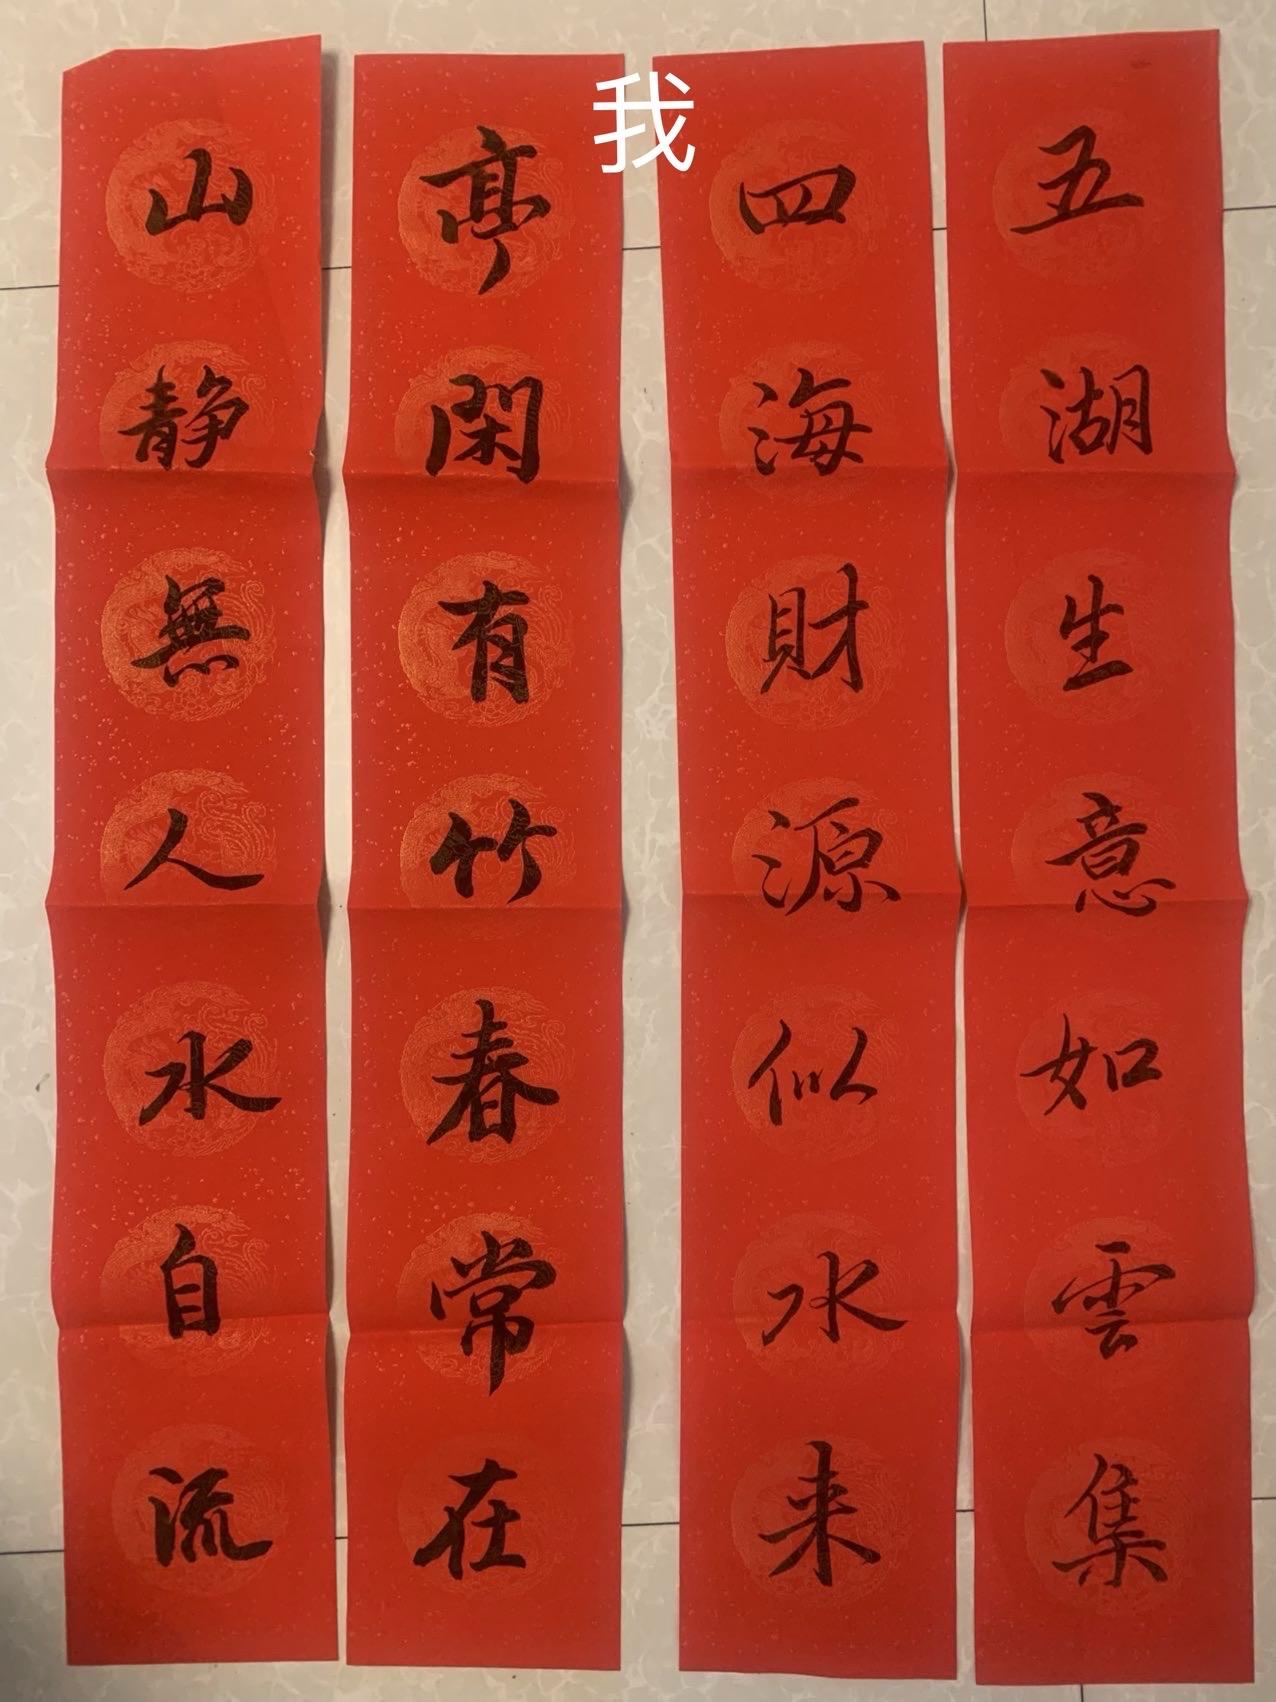 我
五湖生意如雲集
四海財源似水来
亭閑有竹春常在
山静無人水自流